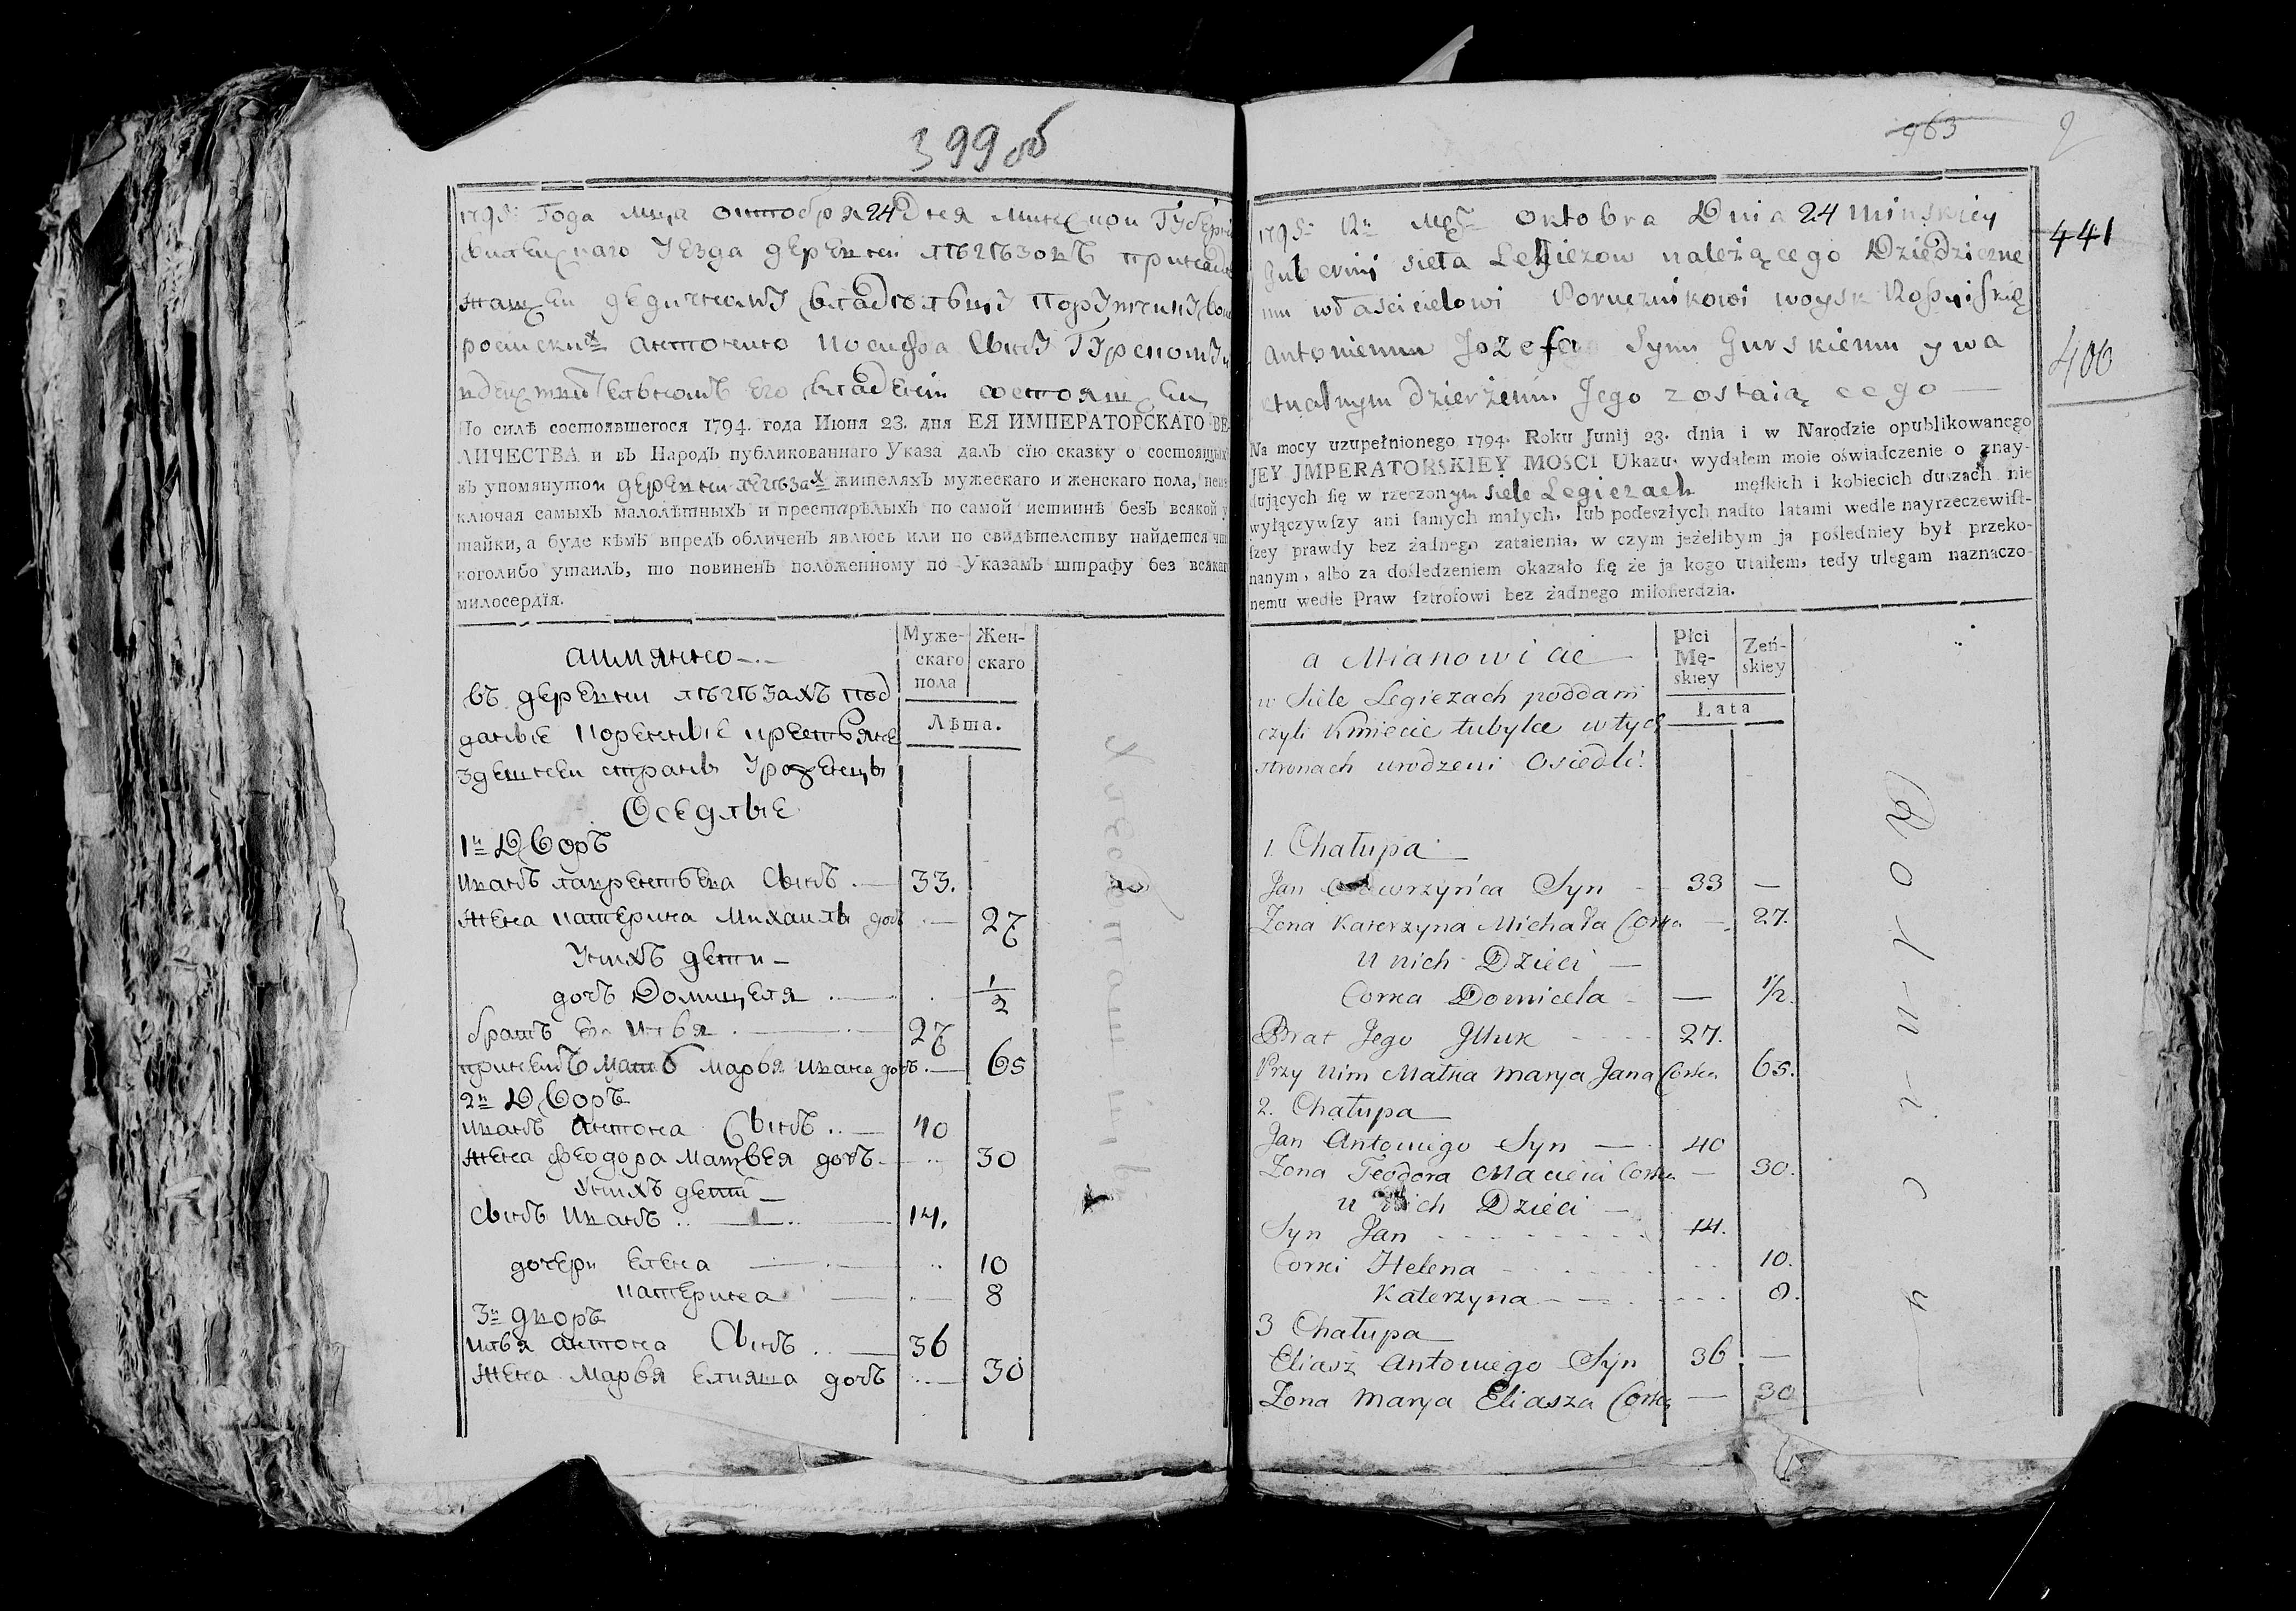 399 об
1795 Года мца октобра 24 дня Минской Губерн
Уезда деревни лѣгѣзовъ принадл
жащей дедичному владѣльцу Порутчику вои
росийскихъ Антонию Иосифа Сыну Гурскому и
его владении состоящей
По силѣ состоявшегося 1794. года Июня 23. дня ЕЯ ИМПЕРАТОРСКАГО ВЕ-
ЛИЧЕСТВА и въ Народъ публикованнаго Указа далъ сїю сказку о состоящихъ
въ упомянутой деревни легѣзахъ жителяхъ мужескаго и женскаго пола, неис
ключая самыхъ малолѣтныхъ и престарѣлыхъ по самой истиннѣ безъ всякой у
тайки, а буде кѣмъ впредъ обличенъ явлюсь или по свидѣтелству найдется что
коголибо утаилъ, то повиненъ положенному по Указамъ штрафу без всякаго
милосердїя.
Муже-скаго пола
Жен-скаго
Лѣта.
а имянно
въ деревни лѣгѣзахъ под
даные коренные крестьяне
здешней страны уроженцы
Оседлые
1й Дворъ
Иванъ лаврентьева Сынъ 33.
Жена катерина Михайлы дочь 27
У нихъ дети
дочь Домицеля 1/2
братъ его Илья 27
при немъ мать Марья Ивана дочь 65
2й Дворъ
Иванъ Антона Сынъ 40
Жена феодора Матвея дочь 30
У нихъ дети
Сынъ Иванъ 14.
дочери Елена 10
катерина 8
3й дворъ
Илья Антона Сынъ 36
Жена Марья Елияша дочь 30
963
2
441
400
1795 Ru Msca Oktobra Dnia 24 Minskiey
Gubernii sieła Legiezow należącego Dziedziczne
mu właścicielowi Porucznikowi woysk Roßyiskię
Antoniemu Jozefa Synu Gurskiemu y wa
ktualnym dzierżeniu Jego zostaiącego
Na mocy uzupełnionego 1794. Roku Junij 23. dnia i w Narodzie opublikowanego
JEY JMPERATORSKIEY MOSCI Ukazu, wydałem moie oświadczenie o znay-
dujących ſię w rzeczonym siele Legiezach męſkich i kobiecich duszach nie
wyłączywſzy ani ſamych małych, lub podeszłych nadto latami wedle nayrzeczewiſt-
ſzey prawdy bez żadnego zataienia, w czym jeżelibym ja poſledniey był przeko-
nanym, albo za doſledzeniem okazało ſię że ja kogo utaiłem, tedy ulegam naznaczo-
nemu wedle Praw ſztrofowi bez żadnego miłoſierdzia.
Płci Mę-skiey
Zeń-skiey
Lata
a Mianowicie
w Siele Legiezach poddani
czyli Kmiecie tubylce w tych
stronach urodzeni Osiedli:
1. Chałupa
Jan Wawrzyńca Syn 33 —
Zona Katerzyna Michała Corka — 27.
U nich Dzieci
Corka Domicela — 1/2.
Brat Jego Jlluk 27.
Przy Nim Matka Marya Jana Corka 65.
2. Chałupa
Jan Antoniego Syn — 40
Zona Teodora Macieia Corka — 30.
U nich Dzieci
Syn Jan 14.
Corki Helena 10.
Katerzyna 8.
3 Chałupa
Eliasz Antoniego Syn 36 —
Zona Marya Eliasza Corka — 30